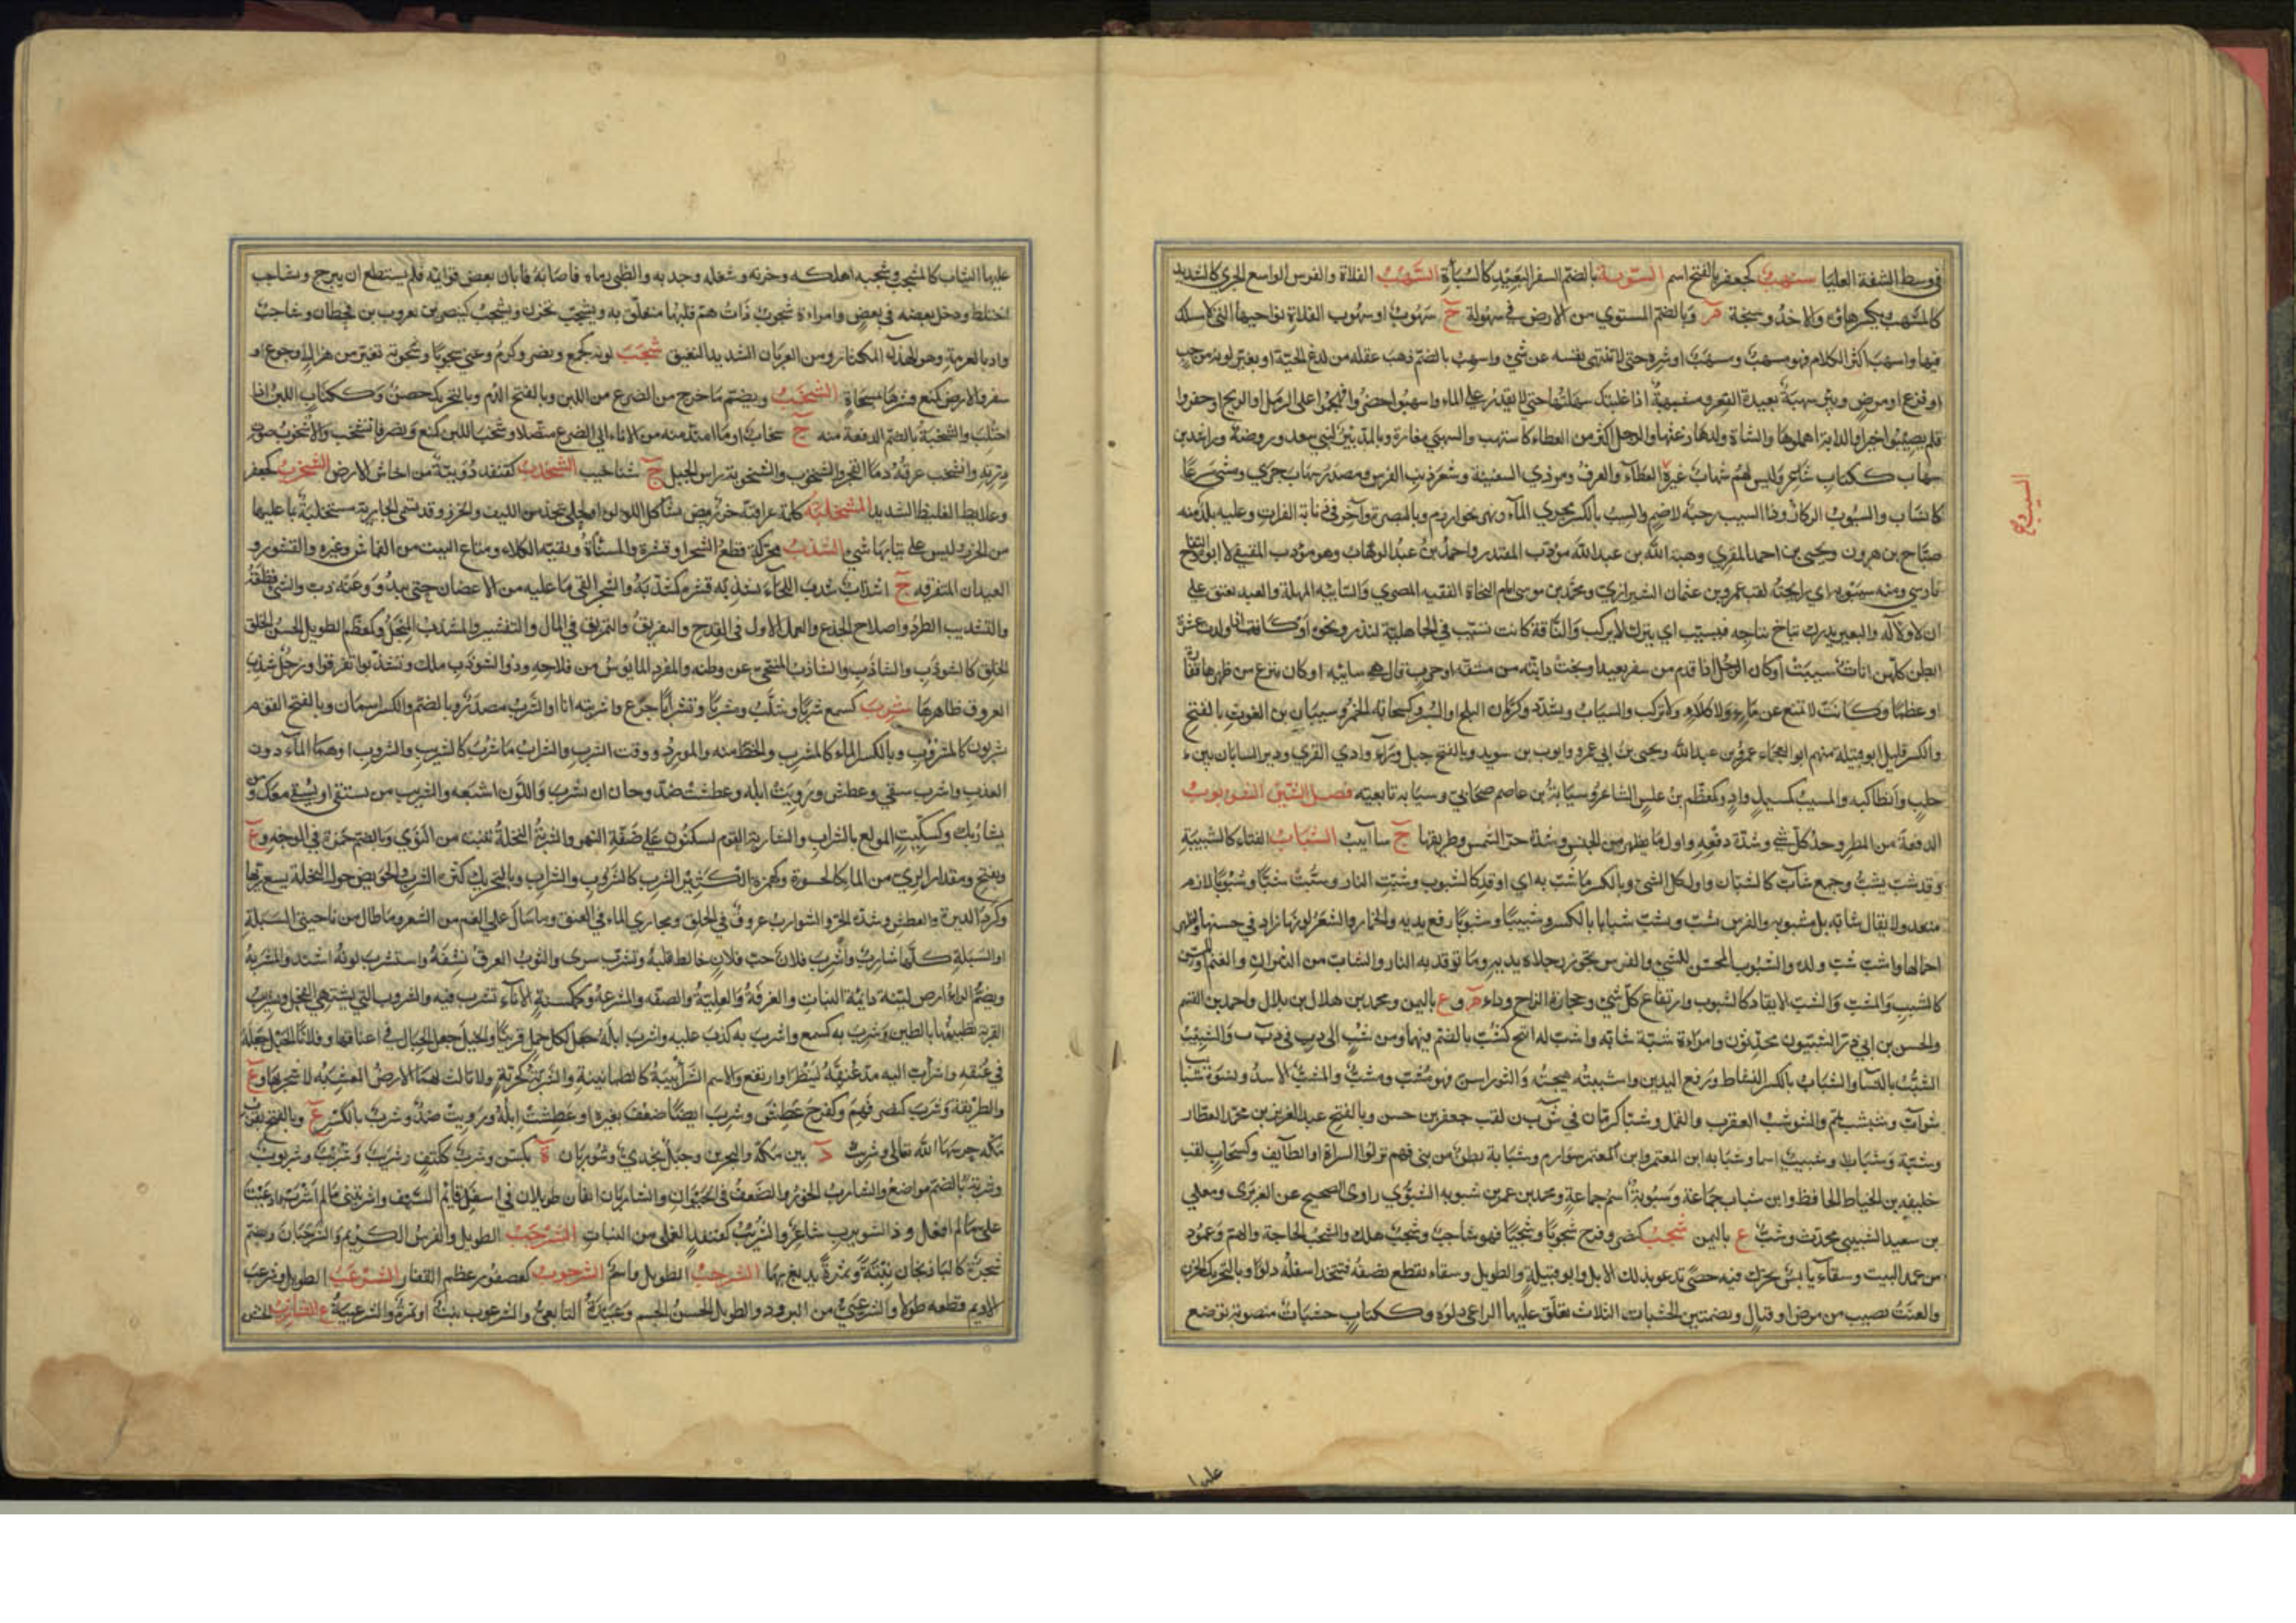 في وسط الشفة العليا سنهب كجعفر بالفتح اسم السوبة بالضم السفر البعيد كالسبأة السهب الفلاة والفرس الواسع الجري كالشديد
كالمسهب وبكسر هاؤه والاخذ وسبخة م وبالضم المستوي من الارض في سهولة ج سهوب او سهوب الفلاة نواحيها التي لا مسلك
فيها واسهب اكثر الكلام فهو مسهب ومسهب او شره حتى لا تنتهي نفسه عن شيء واسهب بالضم ذهب عقله من لدغ الحية او تغير لونه من حب
او فزع او مرض وبئر سهبة بعيدة القعر ومسهبة اذا غلبتك سهبتها حتى لا تقدر على الماء واسهبوا حفروا فهجموا على الرمل او الريح او حفروا
فلم يصيبوا خيرا والدابة اهملوها والشاة ولدها رغثها والرجل اكثر من العطاء كاستهب والسهبى مفازة وبالمد بئر لبني سعد وروضة وراشد بن
سهاب ككتاب شاعر وليس لهم سهاب غيره العطاء والعرف ومردي السفينة وشعر ذنب الفرس ومصدر ساب جرى ومشى مسرعا
كانساب والسيوب الركاز وذات السيب رحبة لاضم والسيب بالكسر مجرى الماء ونهر بخوارزم وبالبصرة وآخر في ذنابة الفرات وعليه بلد منه
صباح بن هرون ويحيى بن احمد المقري وهبة الله بن عبد الله مؤدب المقتدر واحمد بن عبد الوهاب وهو مؤدب المقتفي لا ابوه والتفاح
فارسي ومنه سيبويه اي رايحته لقب عمرو بن عثمان الشيرازي ومحمد بن موسى امام النحاة الفقيه المصري والسائبة المهملة والعبد يعتق على
ان لا ولاء له والبعير يدرك نتاج نتاجه فيسيب اي يترك لا يركب والناقة كانت تسيب في الجاهلية لنذر ونحوه او كانت اذا ولدت عشرة
ابطن كلهن اناث سيبت او كان الرجل اذا قدم من سفر بعيد او نجت دابته من مشقة او حرب قال هي سائبة او كان ينزع من ظهرها فقارة
او عظما وكانت لا تمنع عن ماء ولا كلاء ولا تركب والسياب ويشدد وكرمان البلح او البسر وكسحابة الخمر وسيبان بن الغوث بالفتح
والكسر قليل ابو قبيلة منهم ابو العجماء عمرو بن عبد الله ويحيى بن ابي عمرو وايوب بن سويد وبالفتح جبل وراء وادي القرى ودير السابان بين
حلب وانطاكية والمسيب كمسيل واد وكمعظم بن علس الشاعر وسيابة بن عاصم صحابي وسيابة تابعية فصل الشين الشؤبوب
الدفعة من المطر وحد كل شيء وشدة دفعه واول ما يظهر من الحسن وشدة حر الشمس وطريقها ج شآبيب الشباب الفتاء كالشبيبة
وقد شب يشب وجمع شاب كالشبان واول كل الشيء وبالكسر ما شب به اي اوقد كالشبوب وشبت النار وشبت شبا وشبوبا لازم
متعد ولا يقال شابة بل مشبوبة والفرس يشب ويشب شبابا بالكسر وشبيبا وشبوبا رفع يديه والخمار والشعر لونها زاد في حسنها واظهر
جمالها واشب شب ولده والشبوب المحسن للشيء والفرس تجوز رجلاه يديه وما توقد به النار والشاب من الثيران والغنم او المسن
كالشبب والمشب والشب الايقاد كالشبوب وارتفاع كل شيء وحجارة الزاج وداء م وع باليمن ومحمد بن هلال بن بلال واحمد بن القسم
والحسن بن ابي ذر الشبيون محدثون وامراة شبة شابة واشب له اتيح كشب بالضم فيهما ومن شب الى دب في د ب ب والتشبيب
النسيب بالنساء والشباب بالكسر النشاط ورفع اليدين واشببته هيجته والثور اسن فهو مشب ومشب والمشب الاسد ونسوة شبائب
شواب وشبشب تمم والشوشب العقرب والقمل وشبا كرمان في ش ب ن لقب جعفر بن حسن وبالفتح عبد العزيز بن محمد العطار
وشبة وشباب وشبيب اسما وشبابة ابن المعتمر وابن المعتمر سوار م وشبابة بطن من بني فهم نزلوا السراة او الطائف وكسحاب لقب
خليفة بن الخياط الحافظ وابن شباب جماعة وشبوبة اسم جماعة ومحمد بن عمر بن شبويه الشبوي راوي الصحيح عن الفربري ومعلى
بن سعيد الشبيبي محدث وشب ع باليمن شجب كنصر وفرح شجوبا وشجبا فهو شاجب وشجب هلك والشجب الحاجة والهم وعمود
من عمد البيت وسقاء يابس يحرك فيه حصى تدعو بذلك الابل وابو قبيلة والطويل وسقاء يقطع نصفه فتتخذ اسفله دلوا وبالتحريك الحزن
والعنت نصيب من مرض او قتال وبضمتين الخشبات الثلاث يعلق عليها الراعي دلوه وككتاب خشبات منصوبة توضع
عليها
السيب ع
عليها الثياب كالمشجب وشجبه اهلكه وحزنه وشغله وجذبه والظبي رماه فاصابه فابان بعض قوائمه فلم يستطع ان يبرح وتشاجب
اختلط ودخل بعضه في بعض وامراة شجوب ذات هم قلبها متعلق به وتشجب تحزن ويشجب كينصر بن يعرب بن قحطان وشاجب
واد بالعرمة وهو الهذاء المكثار ومن الغربان الشديد النغيق شحب لونه كجمع ونصر وكرم وعني شحوبا وشحوبة تغير من هزال او جوع او
سفر والارض كمنع قشرها بمسحاة الشخب ويضم ما خرج من الضرع من اللبن وبالفتح الدم وبالتحريك حصن وككتاب اللبن اذا
احتلب والشخبة بالضم الدفعة منه ج شخاب او ما امتد منه من الاناء الى الضرع متصلا وشخب اللبن كمنع ونصر فانشخب والاشخوب صوت
درته وانشخب عرقه دما انفجر والشخوب والشنخوبة راس الجبل ج شناخيب الشخدب كقنفد دويبة من احناش الارض الشخرب كجعفر
وعلابط الغليظ الشديد المشخلبة كلمة عراقية خرز بيض تشاكل اللؤلؤ او الحلي يتخذ من الليف والخرز وقد تسمى الجارية مشخلبة بما عليها
من الخرز وليس على بنائها شيء الشذب محركة قطع الشجر او قشره والمسناة وبقية الكلاء ومتاع البيت من القماش وغيره والقشور و
العيدان المتفرقة ج اشذاب شذب اللحاء يشذبه قشره كشذبه والشجر القى ما عليه من الاغصان حتى يبدو وعنه ذب والشيء قطعه
والتشذيب الطرد واصلاح الجذع والعمل الاول في القدح والتفريق والتمزيق في المال والتقشير والمشذب المنجل وكمعظم الطويل الحسن الخلق
الخلق كالشوذب والشاذب والشاذب المتنحي عن وطنه والمفرد المايوس من فلاحه وذو الشوذب ملك وتشذبوا تفرقوا ورجل شذب
العروق ظاهرها شرب كسمع شربا ويثلث ومشربا وتشرابا جرع واشربته انا او الشرب مصدر وبالضم والكسر اسمان وبالفتح القوم
يشربون كالشروب وبالكسر الماء كالمشرب والحظ منه والمورد ووقت الشرب والشراب ما شرب كالشريب والشروب او هما الماء دون
العذب واشرب سقى وعطش ورويت ابله وعطشت ضد وحان ان تشرب واللون اشبعه والشريب من يستقي او يسقى معك ومن
يشاربك وكسكيت المولع بالشراب والشاربة القوم يسكنون على ضفة النهر والشربة النخلة تنبت من النوى وبالضم حمرة في الوجه وع
ويفتح ومقدار الري من الماء كالحسوة وكهمزة الكثير الشرب كالشروب والشراب وبالتحريك كثرة الشرب والحويض حول النخلة يسع ريها
وكرد الدبرة والعطش وشدة الحر والشوارب عروق في الحلق ومجاري الماء في العنق وما سال على الفم من الشعر وما طال من ناحيتي السبلة
او السبلة كلها شارب واشرب فلان حب فلان خالط قلبه وتشرب سرى والثوب العرق نشفه واستشرب لونه اشتد والمشربة
ويضم الراء ارض لينة دائمة النبات والغرفة والعلية والصفة والمشرعة وكمكنسة الاناء تشرب فيه والشروب التي تشتهي الفحل وشرب
القربة تطييبها بالطين وشرب به كسمع واشرب به كذب عليه واشرب ابله جعل لكل جمل قرينا والخيل جعل الحبال في اعناقها وفلانا الحبل جعله
في عنقه واشراب اليه مد عنقه لينظر او ارتفع والاسم الشرأبيبة كالطمانينة والشربة كجربة ولا ثالث لهما الارض المعشبة لا شجر بها وع
والطريقة وشرب كنصر فهم وكفرح عطش وشرب ايضا ضعف بعيره او عطشت ابله ورويت ضد وشرب بالكسر ع وبالفتح بقرب
مكة حرسها الله تعالى وشربب د بين مكة والبحرين وجبل نجدي وشوربان ة بكسن وشرب ككتف وشرب وشرب وشربوب
وشربة بالضم مواضع والشارب الخور والضعف في الحيوان والشاربان انفان طويلان في اسفل قائم السيف واشربتني ما لم اشرب ادعيت
علي ما لم افعل وذا الشويرب شاعر والشربب كقنفد الغملى من النبات الشرجب الطويل والفرس الكريم والشرجبان ويضم
شجرة كالباذنجان نبتة وثمرة يدبغ بها الشرحب الطويل واسم الشرخوب كعصفور عظم الفقار الشرعب الطويل وشرعب
الاديم قطعه طولا والشرعبي من البرود والطويل الحسن الجسم وعبيدة التابعي والشرعوب نبت او ثمرة والشرعبية ع الشازب الخشن